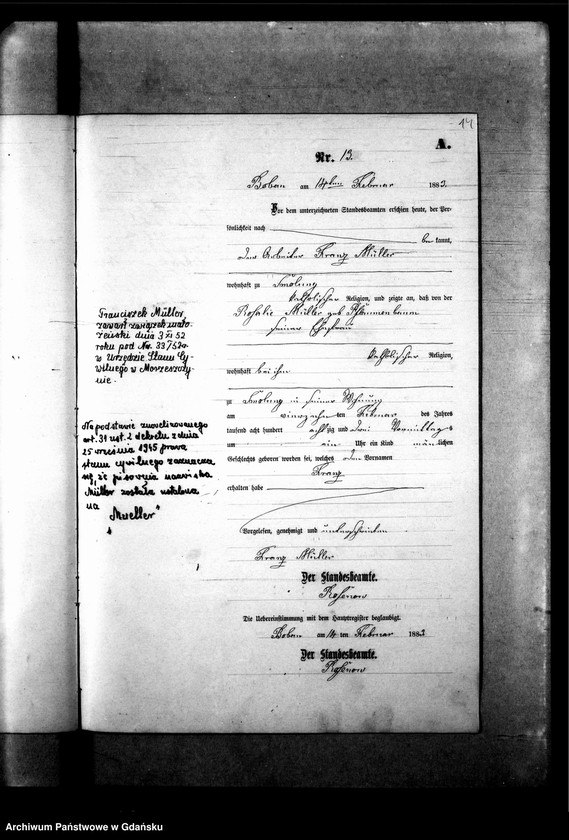 14
A.
Nr. 13.
Boban am 14ten Februar 1883.
Vor dem unterzeichneten Standesbeamten erschien heute, der Per-
sönlichkeit nach
be kannt,
der Arbeiter Franz Müller
wohnhaft zu Smolong
katholischer Religion, und zeigte an, daß von der
Rosalie Müller geb Pflaumenbaum
seiner Ehefrau
katholischer Religion,
wohnhaft bei ihm
zu Smolong in seiner Wohnung
am vierzehnten Februar des Jahres
tausend acht hundert achtzig und drei Vormittags
um ein Uhr ein Kind männlichen
Geschlechts geboren worden sei, welches den Vornamen
Franz
erhalten habe
Vorgelesen, genehmigt und unterschrieben
Franz Müller
Der Standesbeamte.
Rosenow
Die Uebereinstimmung mit dem Hauptregister beglaubigt.
Boban am 14 ten Februar 1883
Der Standesbeamte.
Rosenow
Franciszek Müller
zawarł związek małż-
żeński dnia 3 XI 52
roku pod Nr. 33/52 r.
w Urzędzie Stanu Cy-
wilnego w Morzeszczy-
nie.
Na podstawie znowelizowanego
art. 31 ust. 2 dekretu z dnia
25 września 1945 prawa
stanu cywilnego zaznacza
się, że pisownia nazwiska
Müller została ustalona
na
"Mueller"
Archiwum Państwowe w Gdańsku